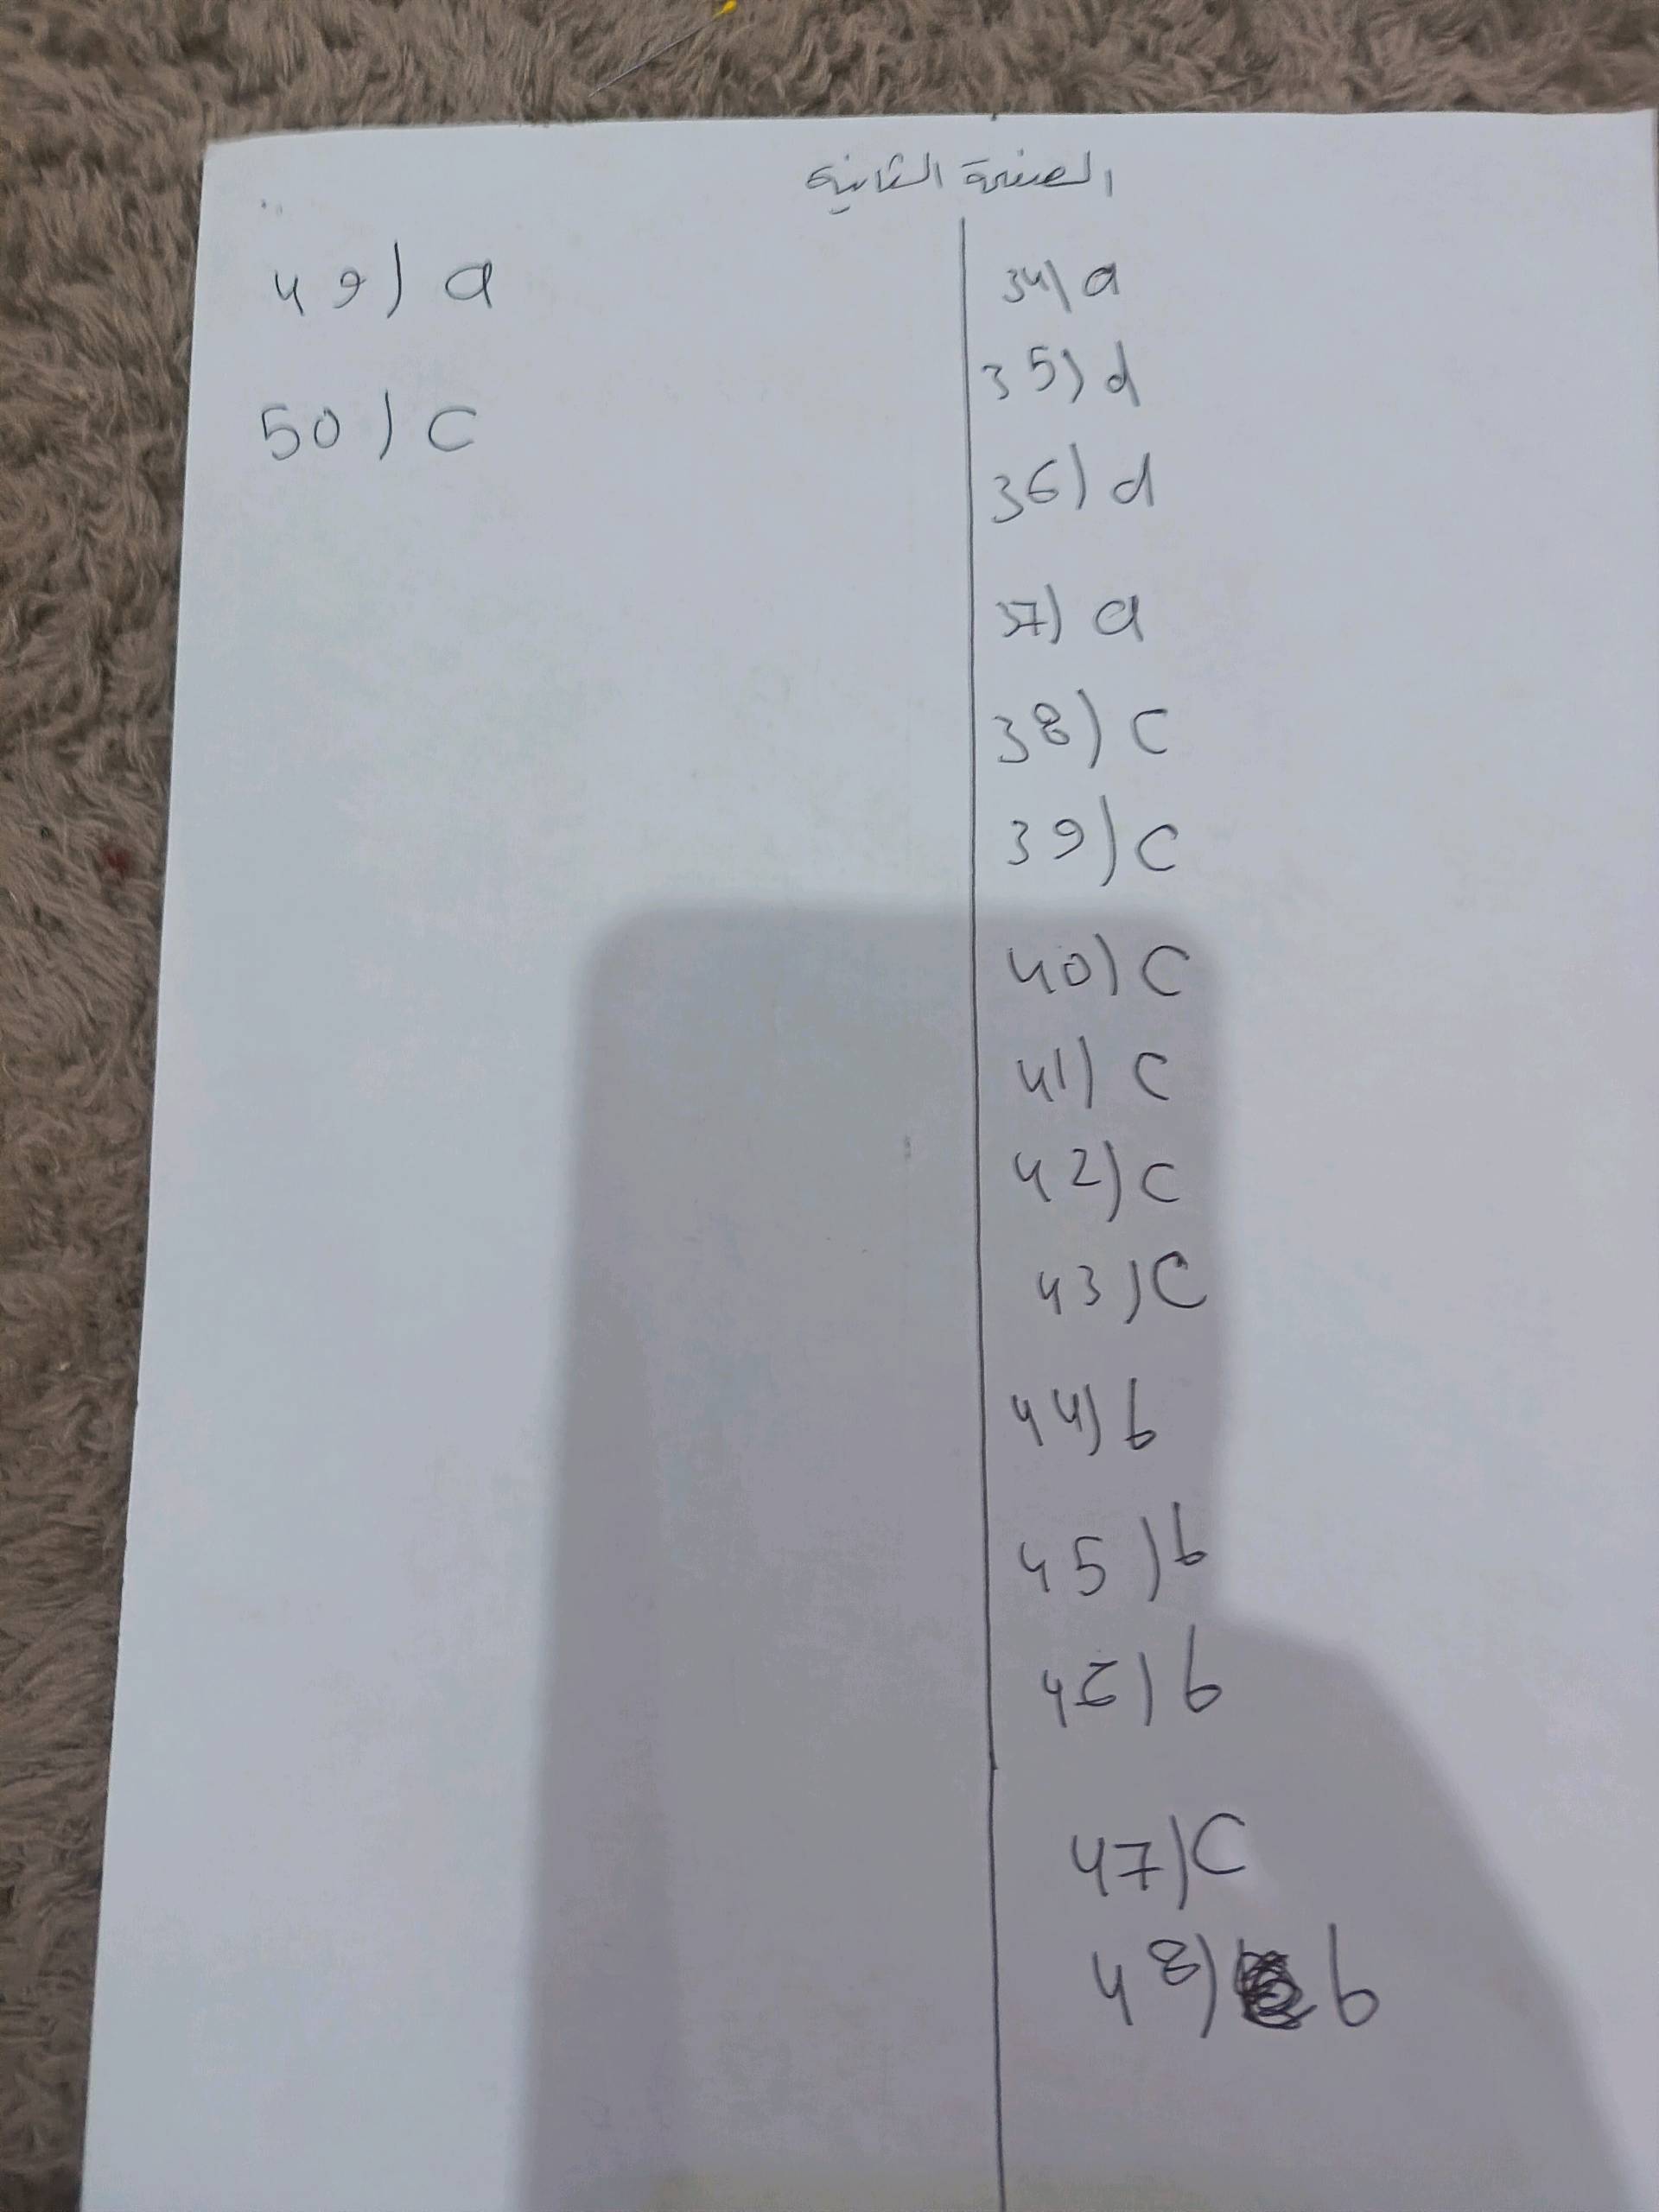 الصفحة الثانية
34) a
35) d
36) d
37) a
38) c
39) c
40) c
41) c
42) c
43) c
44) b
45) b
46) b
47) c
48) b
49) a
50) c